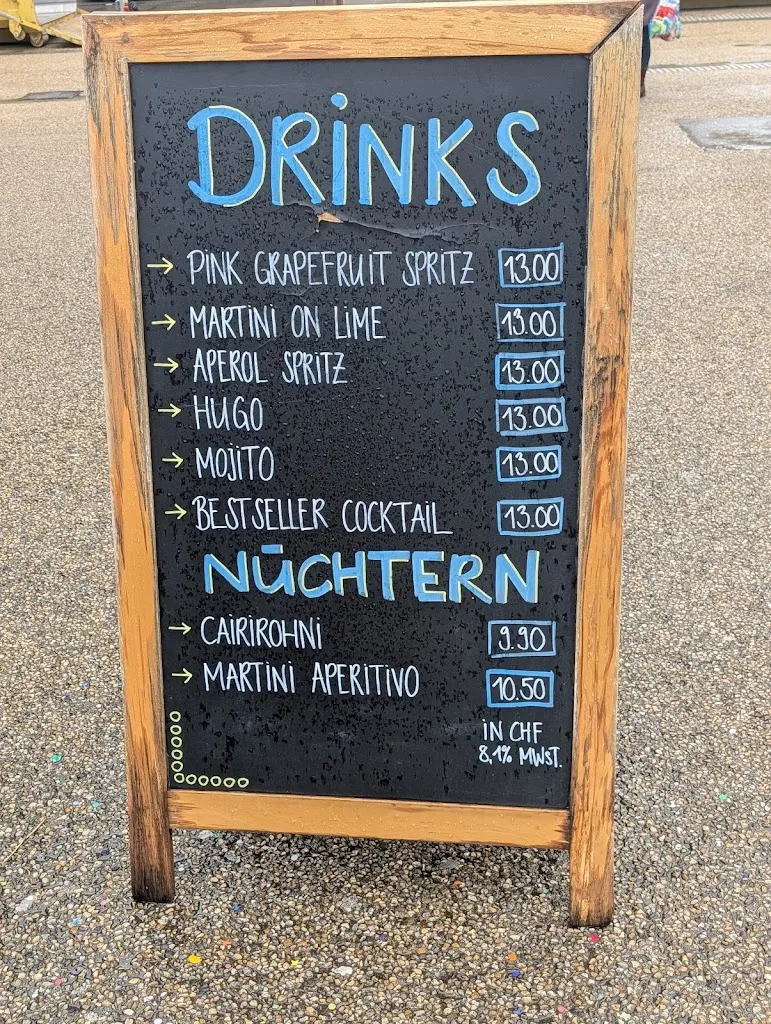 DRINKS
→ PINK GRAPEFRUIT SPRITZ 13.00
→ MARTINI ON LIME 13.00
→ APEROL SPRITZ 13.00
→ HUGO 13.00
→ MOJITO 13.00
→ BESTSELLER COCKTAIL 13.00
NÜCHTERN
→ CAIRIROHNI 9.90
→ MARTINI APERITIVO 10.50
IN CHF
8,1% MWST.